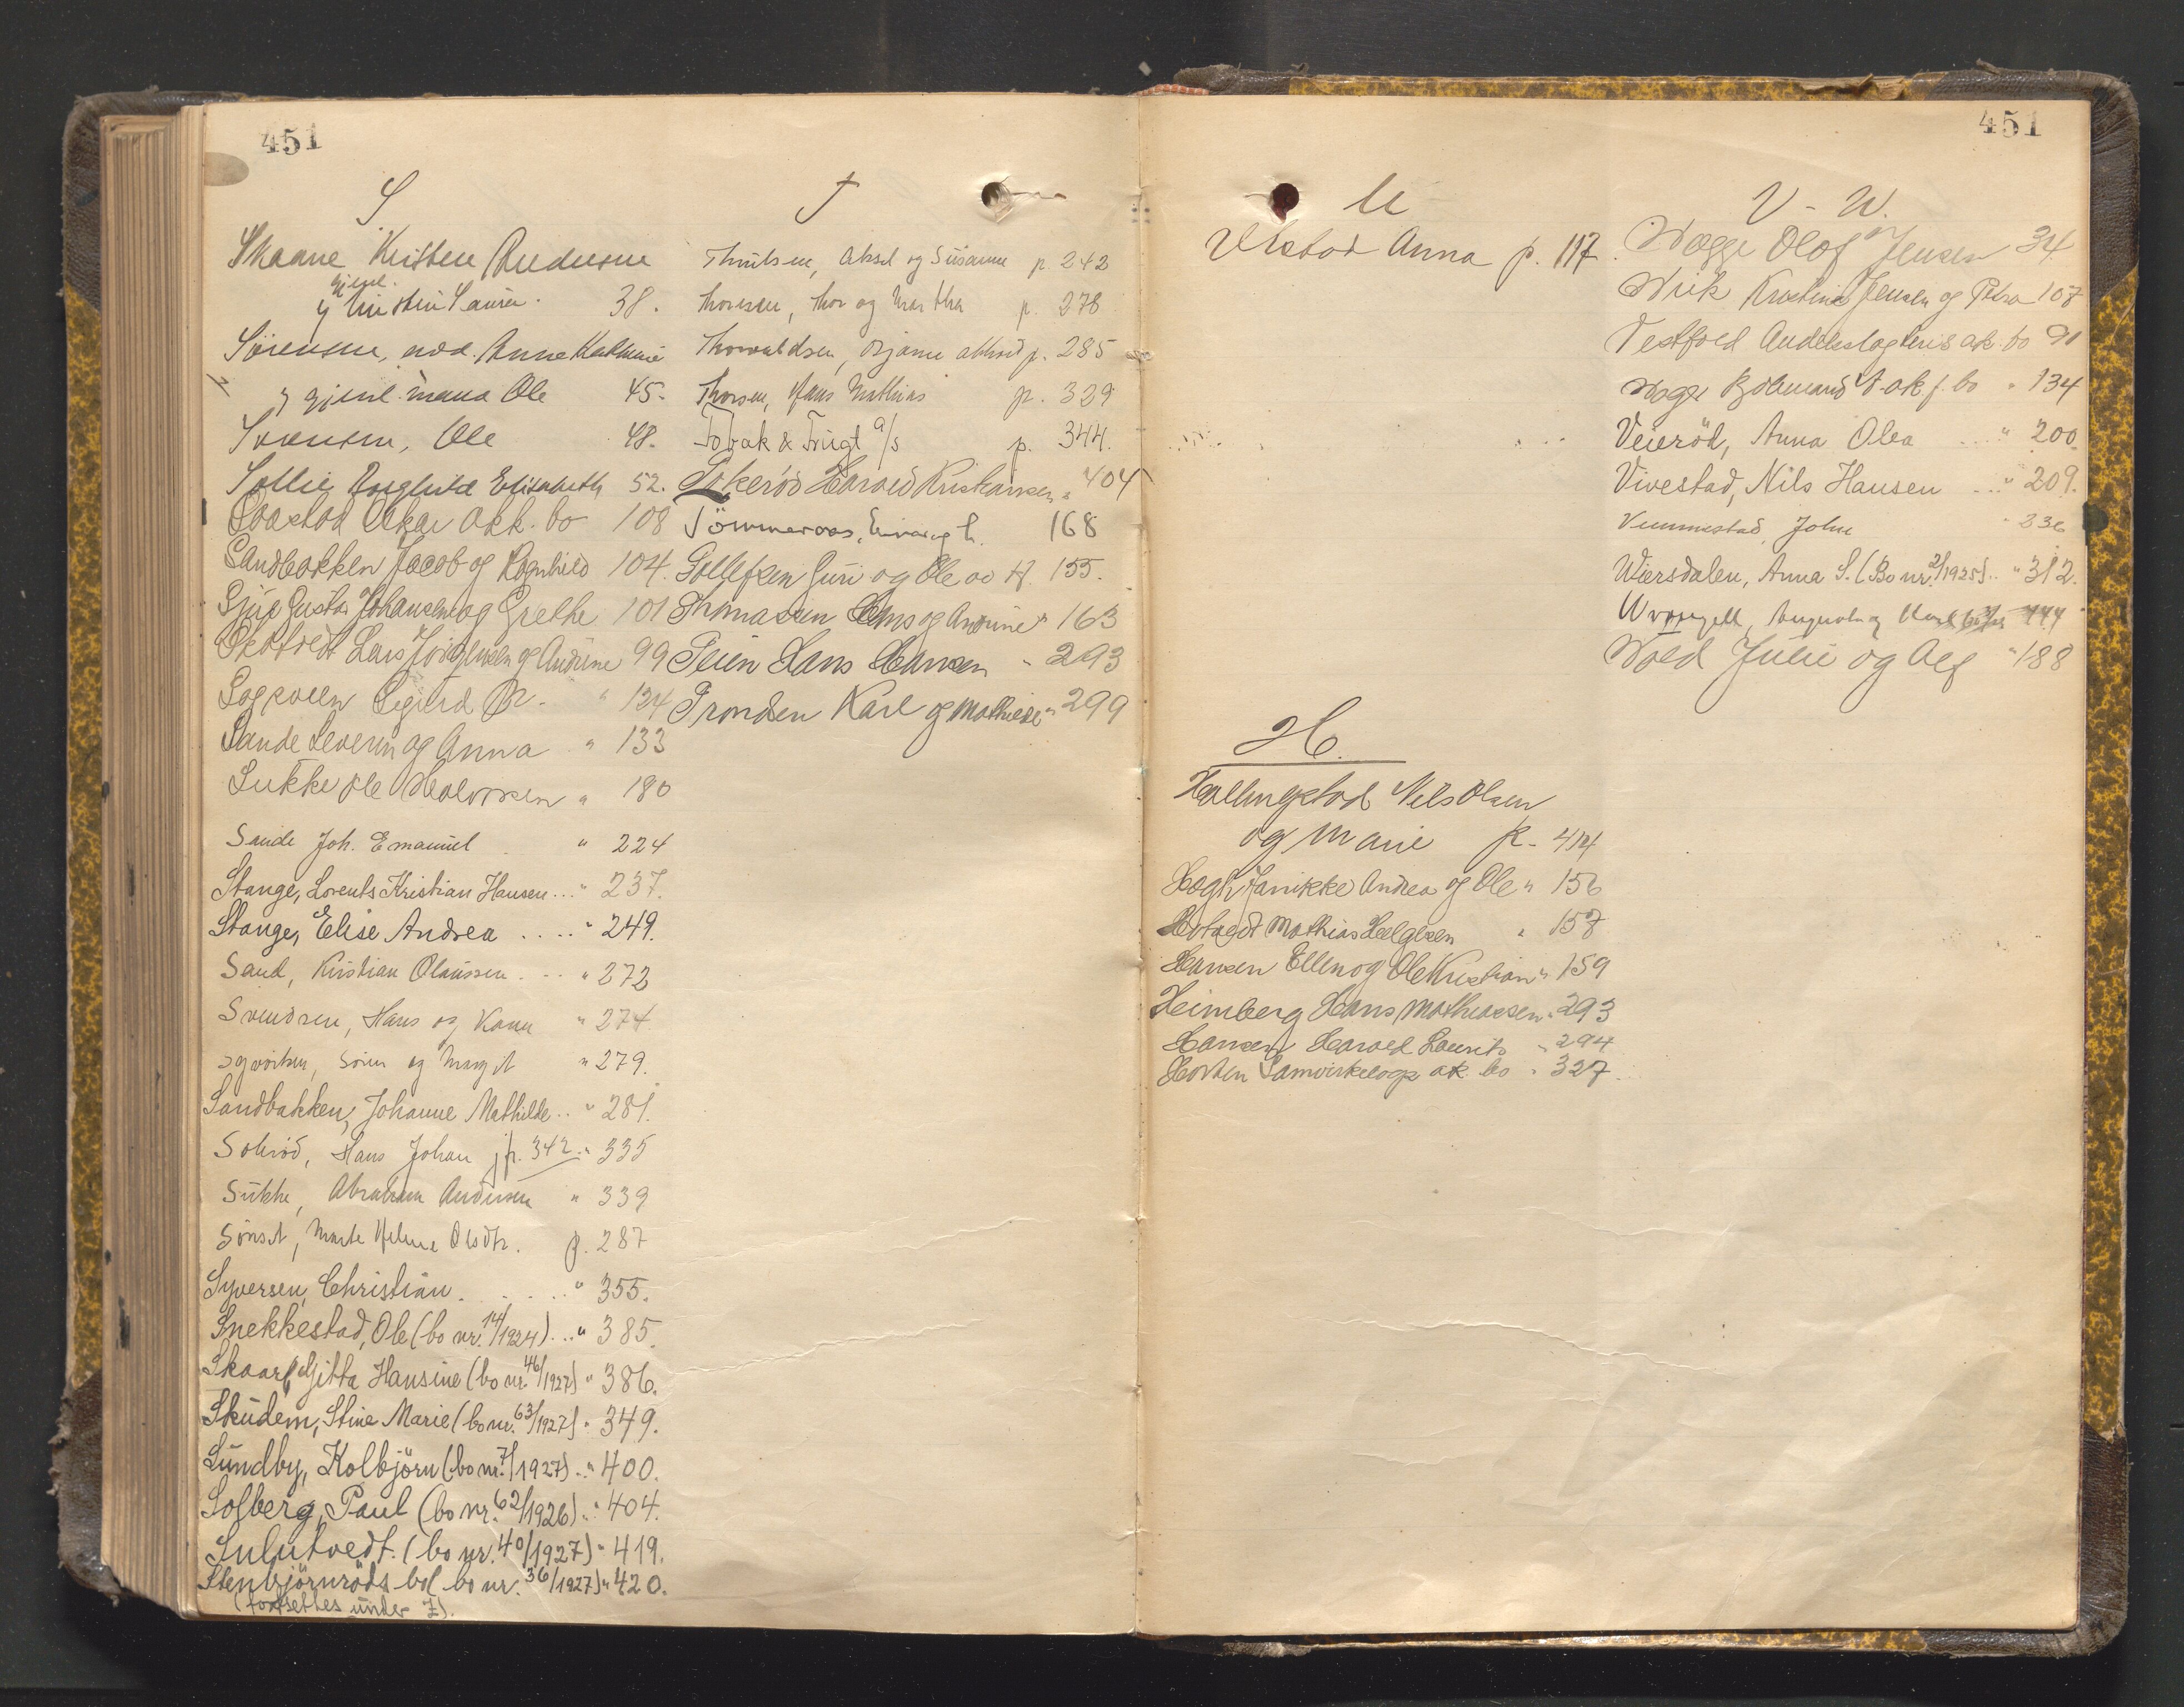 451
S
Skaane Kristen Andersen
gjenl.
38.
Sörensen, Anne Kathrine
gjenl. mand Ole 45.
Sörensen, Ole 48.
Sollie Ragnhild Elisabeth 52.
Oskar akk. bo 108
Sandbakken Jacob og Ragnhild 104.
Gustav Johansen og Grethe 101
Lars Jörgensen og Andrine 99
Sigurd " 124
Sande Severin og Anna " 133
Sukke Ole Halvorsen " 180
Sande Joh. Emanuel " 224
Stange, Lorents Kristian Hansen ... " 237.
Stange, Elise Andrea .... " 249.
Sand, Kristian Olaussen. .. " 272
Svendsen, Hans og Karen " 274
Sören og Margit " 279.
Sandbakken, Johanne Mathilde .. " 281.
Solerød, Hans Johan jfr. 342 " 335
Sukke, Abraham Andersen " 339
Marte Helene Olsdtr. p. 287
Syversen, Christian. ..... " 355.
Snekkestad, Ole (bo nr. 14/1924) ... " 385.
Skaar, Gitta Hansine (bo nr. 46/1927) " 386.
Skudem, Stine Marie (bo nr. 63/1927) " 349.
Sundby, Kolbjörn (bo nr. 7/1927) .. " 400.
Solberg, Paul (bo nr. 62/1926) .. " 404.
Sulutvedt. (bo nr. 40/1927) " 419.
Stenbjörnröds bo( bo nr. 36/1927) " 420.
(fortsettes under Z).
T
Aksel og Susanne p. 242
Thoresen, Thor og Martha p. 278
Thorvaldsen, Bjarne p. 285
Thorsen, Hans Mathias p. 329
Tobak & Frugt a/s p. 344.
Harald Kristiansen " 404
Tömmeraas, Einar og h. 168
Tollefsen Guri og Ole 155.
Thomassen Hans og Andrine " 163
Teien Hans Hansen " 293
Trondsen Karl og Mathilde " 299
451
U
Ulstad Anna p. 117.
H.
Hallingstad Nils Olsen
og Marie p. 414
Hogh Janikke Andrea og Ole " 156
Hotvedt Mathias Helgesen " 157
Hansen Ellen og Ole Kristian " 159
Heimberg Hans Mathiassen " 293
Hansen Harald Laurits " 294
Horten Samvirkelags ak. bo " 327
V - W.
Wegge Olof Jensen 34
Wiik Kristine Jensen og Petra 107
Vestfold Andelsslagteris ak. bo 91
134
Veieröd, Anna Olea .... " 200.
Vivestad, Nils Hansen ... " 209.
Vummestad, John " 236
Wiersdalen, Anna S. (Bo nr. 2/1925) .. " 312.
444
Wold Julie og Alf " 188